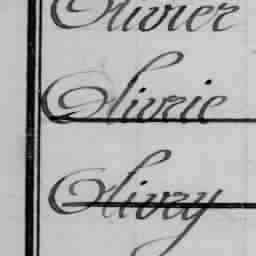 Olivier
Olivrie
Olivry